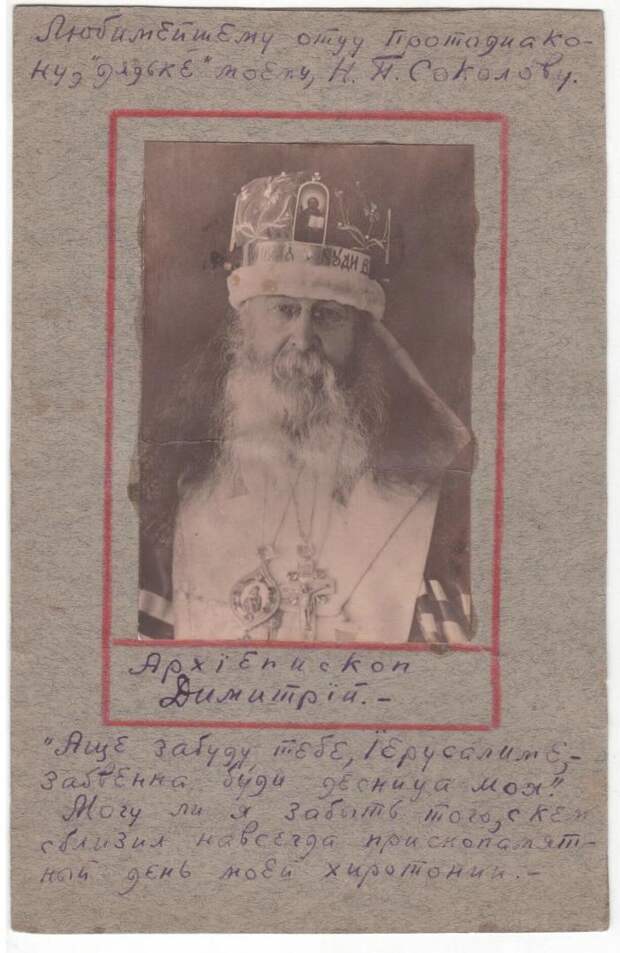 Любимейшему отцу Протодиако-
ну, "дядьке" моему, Н. П. Соколову.
УДИ В
Архіепископ
Димитрій.–
"Аще забуду тебе, Іерусалиме,–
забвенна буди десница моя".
Могу ли я забыть того, с кем
сблизил навсегда прископамят-
ный день моей хиротонии.–